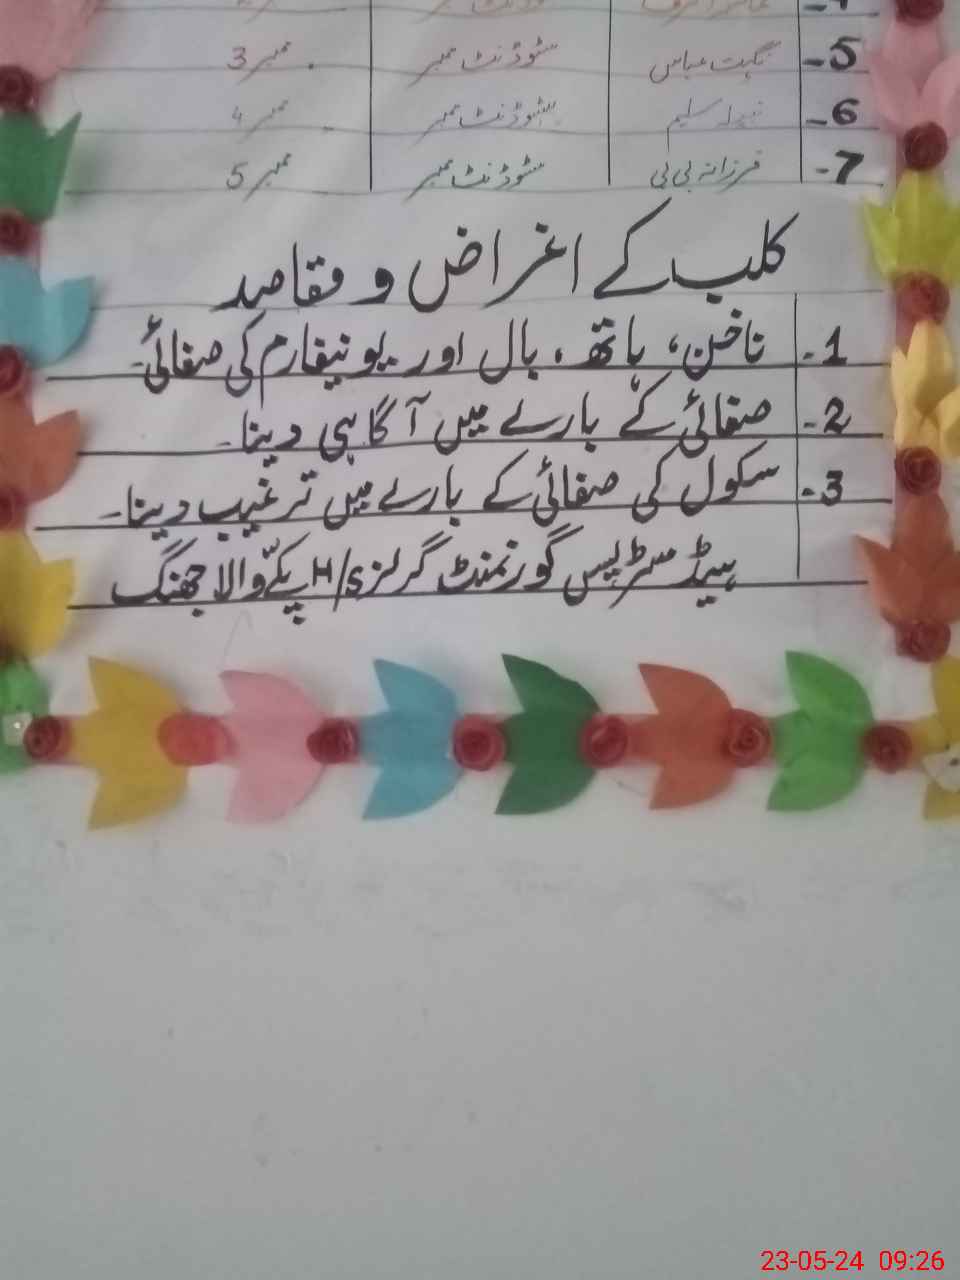 5- نگہت عباس سٹوڈنٹ ممبر ممبر 3
6- نبیلہ سلیم سٹوڈنٹ ممبر ممبر 4
7- فرزانہ بی بی سٹوڈنٹ ممبر ممبر 5
کلب کے اغراض و مقاصد
1- ناخن، ہاتھ، بال اور یونیفارم کی صفائی۔
2- صفائی کے بارے میں آگاہی دینا۔
3- سکول کی صفائی کے بارے میں ترغیب دینا۔
ہیڈ مسٹریس گورنمنٹ گرلز H/S پکے والا جھنگ
23-05-24 09:26